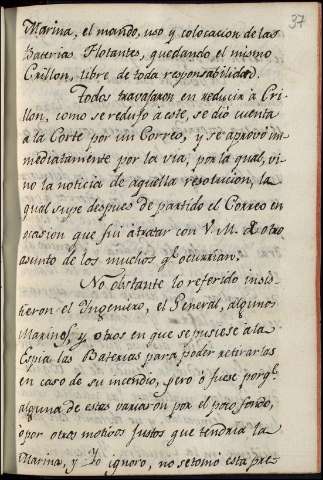 37
Marina, el mando, uso y colocacion de las
Baterias Flotantes, quedando el mismo
Crillon, libre de toda responsabilidad.
Todos travajaron en reducir a Cri-
llon, como se redujo a este, se dió cuenta
a la Corte por un Correo, y se aprovó in-
mediatamente por la via, por la qual, vi-
no la noticia de aquella resolucion, la
qual supe despues de partido el Correo en
ocasion que fui á tratar con V. M. de otro
asunto de los muchos qe. ocurrian.
No obstante lo referido insis-
tieron el Yngeniero, el General, algunos
Marinos, y otros en que se pusiese a la
Espia las Baterias para poder retirarlas
en caso de su incendio, pero ó fuese porqe.
alguna de estas vararon por el poco fondo,
ó por otros motivos justos que tendria la
Marina, y Yo ignoro, no se tomó esta pre-